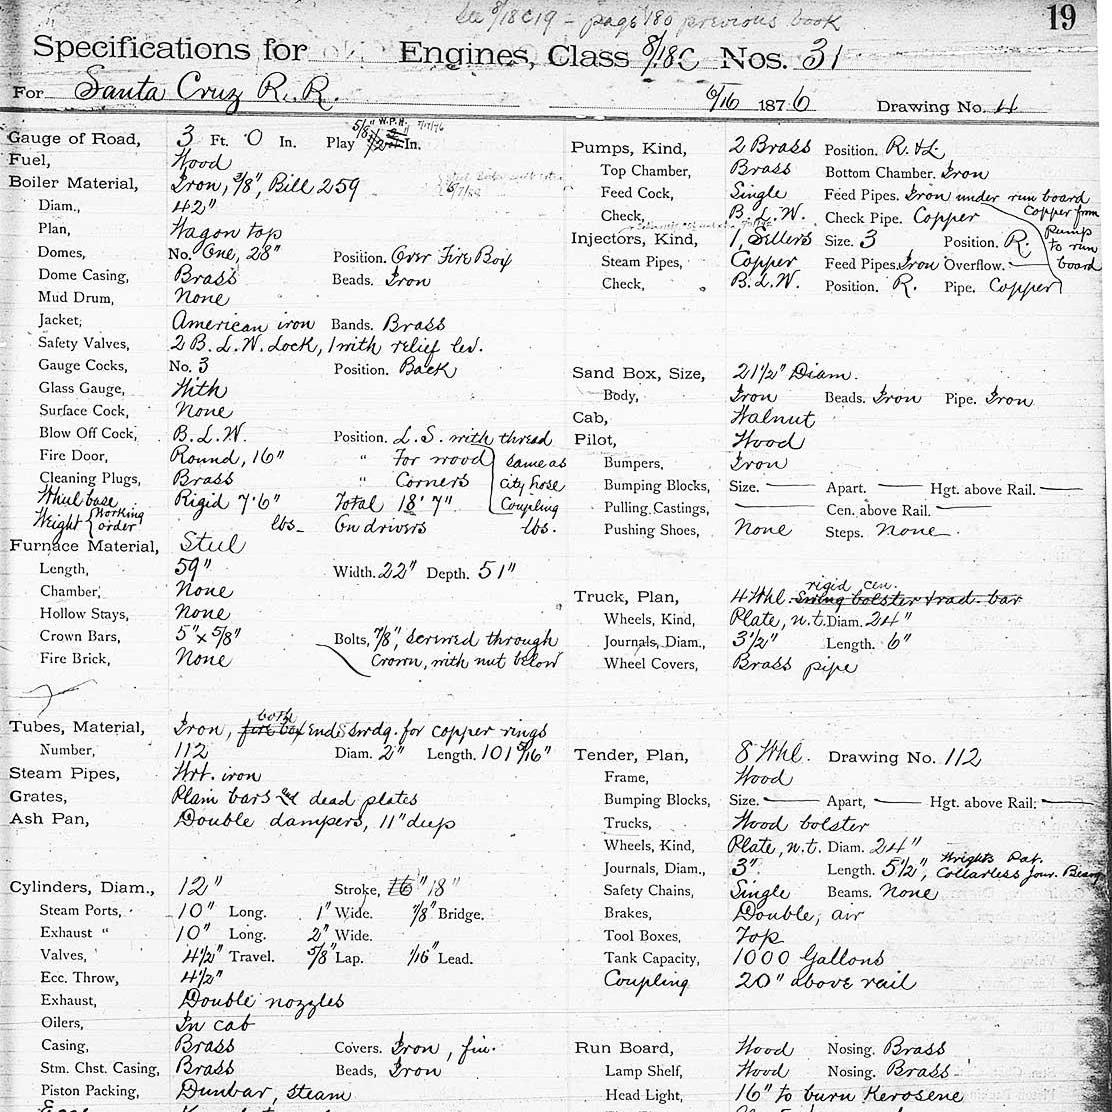 See 8/18C19 - page 180 previous book
19
Specifications for Engines, Class 8/18C Nos. 31
For Santa Cruz R.R. 6/16 1876 Drawing No. 11
Gauge of Road, 3 Ft. 0 In. Play 5/8" W.P.H. 7/17/76 In.
Fuel, Wood
Boiler Material, Iron, 3/8", Bill 259
Diam., 42"
Plan, Wagon top
Domes, No. One, 28" Position. Over Fire Box
Dome Casing, Brass Beads. Iron
Mud Drum, None
Jacket, American iron Bands. Brass
Safety Valves, 2 B.L.W. Lock, 1 with relief lev.
Gauge Cocks, No. 3 Position. Back
Glass Gauge, With
Surface Cock, None
Blow Off Cock, B.L.W. Position. L.S. with thread
Fire Door, Round, 16" " For wood same as
Cleaning Plugs, Brass " Corners city hose
Whul base Rigid 7'6" Total 18'7" Coupling
Weight Working order lbs. On drivers lbs.
Furnace Material, Steel
Length, 59" Width. 22" Depth. 51"
Chamber, None
Hollow Stays, None
Crown Bars, 5" x 5/8" Bolts, 7/8", screwed through
Fire Brick, None Crown, with nut below
Tubes, Material, Iron, fire box both Ends Swdg. for copper rings
Number, 112 Diam. 2" Length. 101 5/16"
Steam Pipes, Wrt. iron
Grates, Plain bars and dead plates
Ash Pan, Double dampers, 11" deep
Cylinders, Diam., 12" Stroke, 16" 18"
Steam Ports, 10" Long. 1" Wide. 7/8" Bridge.
Exhaust " 10" Long. 2" Wide.
Valves, 4 1/2" Travel. 5/8" Lap. 1/16" Lead.
Ecc. Throw, 4 1/2"
Exhaust, Double nozzles
Oilers, In cab
Casing, Brass Covers. Iron, fin.
Stm. Chst. Casing, Brass Beads, Iron
Piston Packing, Dunbar, steam
Pumps, Kind, 2 Brass Position. R. & L.
Top Chamber, Brass Bottom Chamber. Iron
Feed Cock, Single Feed Pipes. Iron under run board
Check, B.L.W. Check Pipe. Copper Copper from Pump to run board
Injectors, Kind, 1, Sellers Size. 3 Position. R.
Steam Pipes, Copper Feed Pipes. Iron Overflow. —
Check, B.L.W. Position. R. Pipe. Copper
Sand Box, Size, 21 1/2" Diam.
Body, Iron Beads. Iron Pipe. Iron
Cab, Walnut
Pilot, Wood
Bumpers, Iron
Bumping Blocks, Size. — Apart. — Hgt. above Rail. —
Pulling Castings, — Cen. above Rail. —
Pushing Shoes, None Steps. None.
Truck, Plan, 4 Whl. rigid cen. Swing bolster & rad. bar
Wheels, Kind, Plate, n.t. Diam. 24"
Journals, Diam., 3 1/2" Length. 6"
Wheel Covers, Brass pipe
Tender, Plan, 8 Whl. Drawing No. 112
Frame, Wood
Bumping Blocks, Size. — Apart, — Hgt. above Rail. —
Trucks, Wood bolster
Wheels, Kind, Plate, n.t. Diam. 24"
Journals, Diam., 3" Length. 5 1/2", Wrights Pat. Collarless Jour. Bearg
Safety Chains, Single Beams. None
Brakes, Double, air
Tool Boxes, Top
Tank Capacity, 1000 Gallons
Coupling 20" above rail
Run Board, Wood Nosing. Brass
Lamp Shelf, Wood Nosing. Brass
Head Light, 16" to burn Kerosene